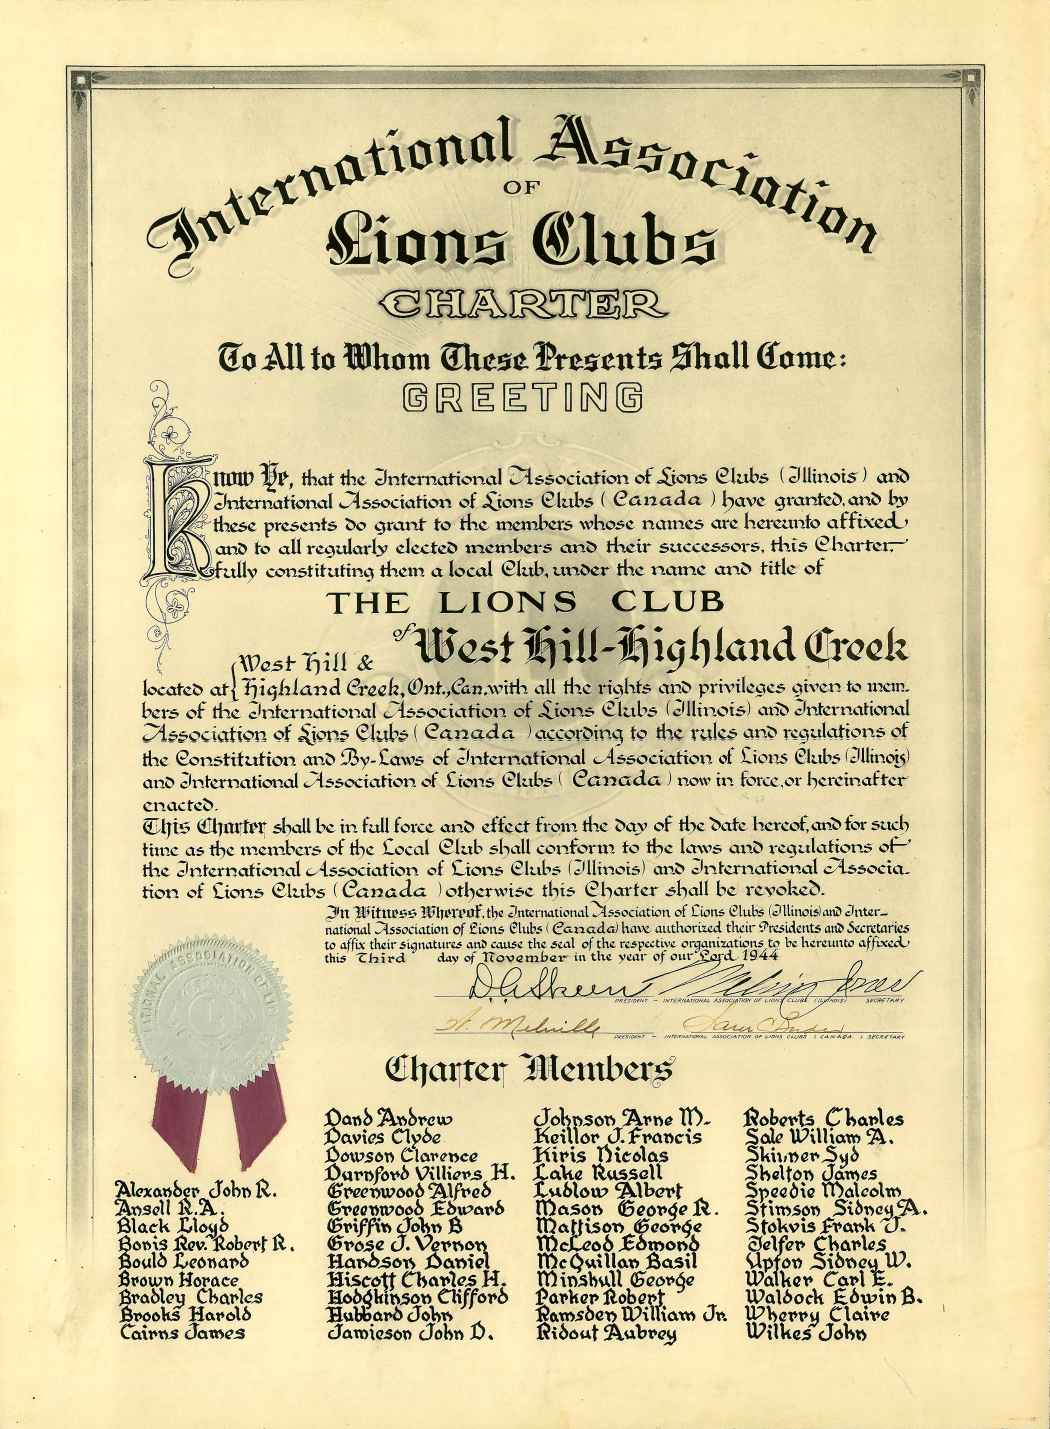 International Association
OF
Lions Clubs
CHARTER
To All to Whom These Presents Shall Come:
GREETING
Know Ye, that the International Association of Lions Clubs (Illinois) and
International Association of Lions Clubs (Canada) have granted, and by
these presents do grant to the members whose names are hereunto affixed
and to all regularly elected members and their successors, this Charter
fully constituting them a local Club, under the name and title of
THE LIONS CLUB
of West Hill-Highland Creek
West Hill &
located at Highland Creek, Ont., Can, with all the rights and privileges given to mem-
bers of the International Association of Lions Clubs (Illinois) and International
Association of Lions Clubs (Canada) according to the rules and regulations of
the Constitution and By-Laws of International Association of Lions Clubs (Illinois)
and International Association of Lions Clubs (Canada) now in force, or hereinafter
enacted.
This Charter shall be in full force and effect from the day of the date hereof, and for such
time as the members of the Local Club shall conform to the laws and regulations of
the International Association of Lions Clubs (Illinois) and International Associa-
tion of Lions Clubs (Canada) otherwise this Charter shall be revoked.
In Witness Whereof, the International Association of Lions Clubs (Illinois) and Inter-
national Association of Lions Clubs (Canada) have authorized their Presidents and Secretaries
to affix their signatures and cause the seal of the respective organizations to be hereunto affixed
this Third day of November in the year of our Lord 1944
D. A. Skeen Melvin Jones
PRESIDENT - INTERNATIONAL ASSOCIATION OF LIONS CLUBS (ILLINOIS) SECRETARY
Melville
PRESIDENT - INTERNATIONAL ASSOCIATION OF LIONS CLUBS (CANADA) SECRETARY
Charter Members
Alexander John R.
Ansell R.A.
Black Lloyd
Bonis Rev. Robert R.
Bould Leonard
Brown Horace
Bradley Charles
Brooks Harold
Cairns James
Dand Andrew
Davies Clyde
Dowson Clarence
Durnford Villiers H.
Greenwood Alfred
Greenwood Edward
Griffin John B
Grose J. Vernon
Handson Daniel
Hiscott Charles H.
Hodgkinson Clifford
Hubbard John
Jamieson John D.
Johnson Arne M.
Keillor J. Francis
Kiris Nicolas
Lake Russell
Ludlow Albert
Mason George R.
Mattison George
McLeod Edmond
McQuillan Basil
Minshull George
Parker Robert
Ramsden William Jr.
Ridout Aubrey
Roberts Charles
Sale William A.
Skinner Syd
Shelton James
Speedie Malcolm
Stimson Sidney A.
Stokvis Frank J.
Telfer Charles
Upton Sidney W.
Walker Carl E.
Waldock Edwin B.
Wherry Claire
Wilkes John